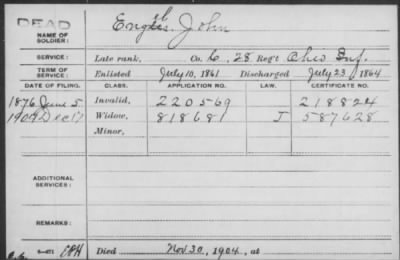 DEAD
NAME OF SOLDIER: John
SERVICE: Late rank, Co. 28 Regt Ohio Inf.
TERM OF SERVICE: Enlisted July 10, 1861 Discharged July 23, 1864
DATE OF FILING. CLASS. APPLICATION NO. LAW. CERTIFICATE NO.
1876 June 5 Invalid, 220569 218824
1904 Dec 17 Widow, 818681 J 587628
Minor,
ADDITIONAL SERVICES:
REMARKS:
Died Nov. 30, 1904, at